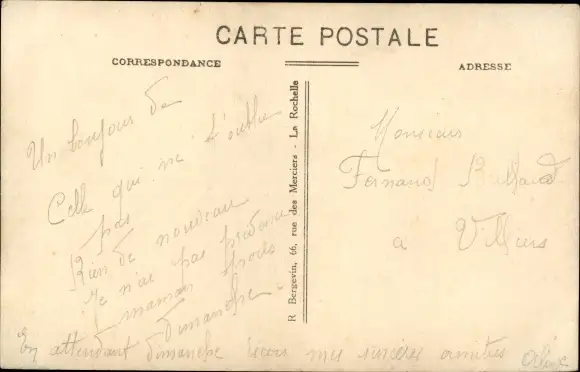 CARTE POSTALE
CORRESPONDANCE
ADRESSE
Un bonjour de
Celle qui ne t'oublie
pas
Rien de nouveau
Je n'ai pas
maman
dimanche
En attendant dimanche mes sincères amitiés
R Bergevin, 66, rue des Merciers - La Rochelle
Monsieur
Fernand
a Villiers